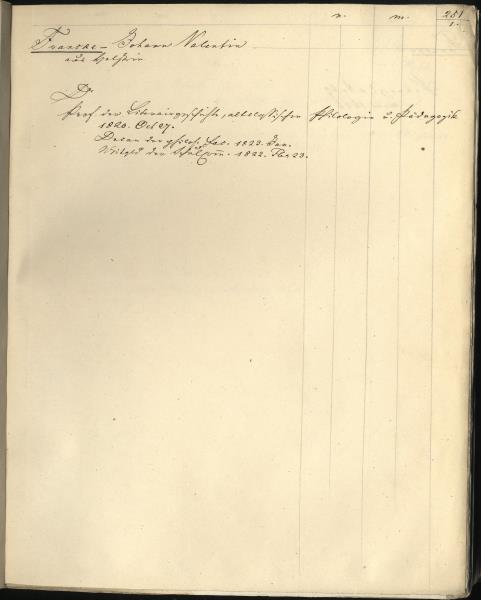 n. m. 251
1.
Francke - Johann Valentin
aus Holstein
Dr.
Prof der Literairgeschichte, altclassischen Philologie u Pädagogik
1820. Oct 27.
Decan der philos. Fac. 1823. Jan.
Mitgld der Schulcom. 1822. 23.